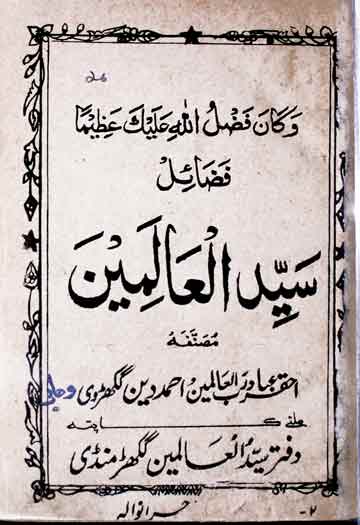 وَكَانَ فَضْلُ اللّٰهِ عَلَيْكَ عَظِيْمًا
فَضَائِلْ
سَيِّدِ الْعَالَمِيْنَ
مُصَنَّفَهٗ
احقر عباد رب العالمین احمد دین گکھڑوی
ملنے کا پتہ
دفتر سید العالمین گکھڑ منڈی
۲-